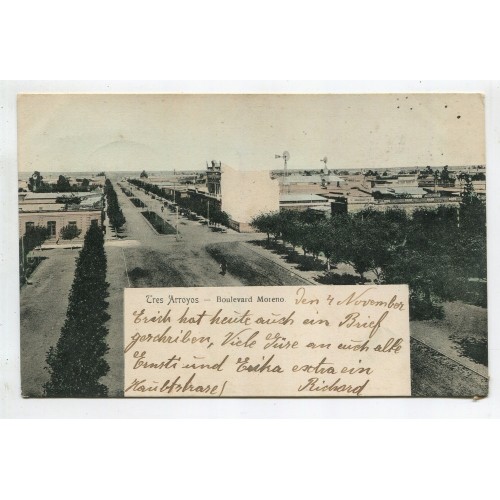 Tres Arroyos – Boulevard Moreno den 4 November
Erich hat heute auch ein Brief
geschrieben, Viele Füse an euch alle
Ernsti und Erika extra ein
Richard